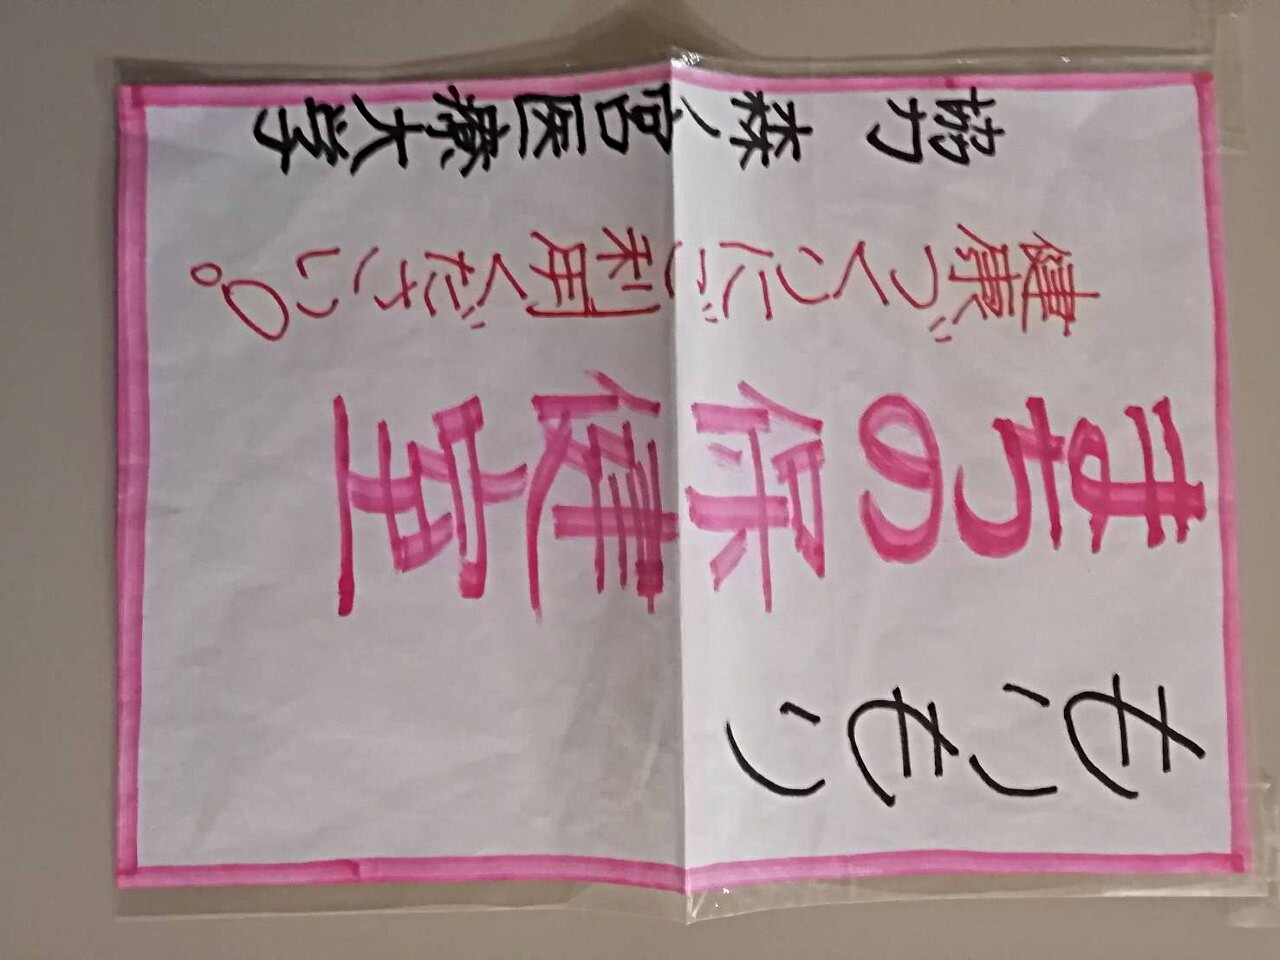 もりもり
まちの保健室
健康づくりにご利用ください！
協力 森ノ宮医療大学